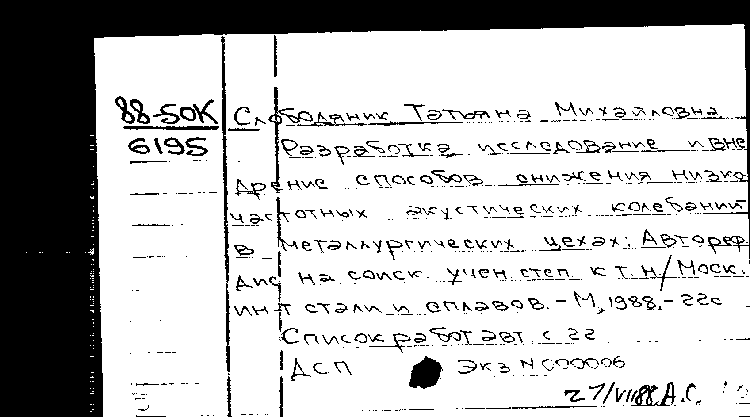 88-50К Слободяник Татьяна Михайловна
6195 Разработка исследование и вне
дрение способов снижения низко
частотных акустических колебаний
в металлургических цехах: Автореф
дис на соиск. учен степ к т. н/Моск.
ин-т стали и сплавов. - М, 1988. - 22с
Список работ авт с 22
ДСП Экз N С00006
27/VII88 А.С.